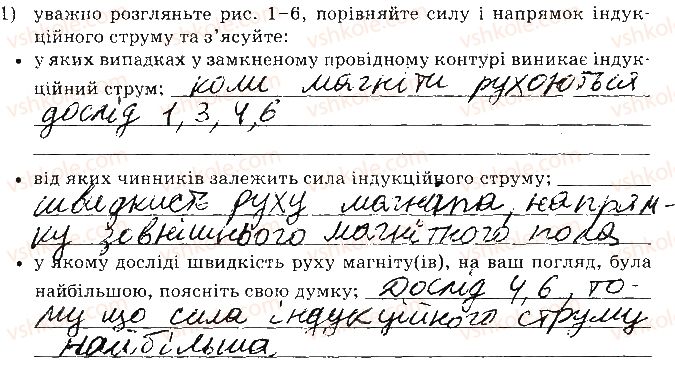 1) уважно розгляньте рис. 1–6, порівняйте силу і напрямок індук-
ційного струму та з'ясуйте:
• у яких випадках у замкненому провідному контурі виникає індук-
ційний струм; коли магніти рухоються
дослід 1, 3, 4, 6
• від яких чинників залежить сила індукційного струму;
швидкисть руху магніта, напрям-
ку зовнішнього магнітного поля
• у якому досліді швидкість руху магніту(ів), на ваш погляд, була
найбільшою, поясніть свою думку; Дослід 4, 6, то-
му що сила індукційного струму
найбільша